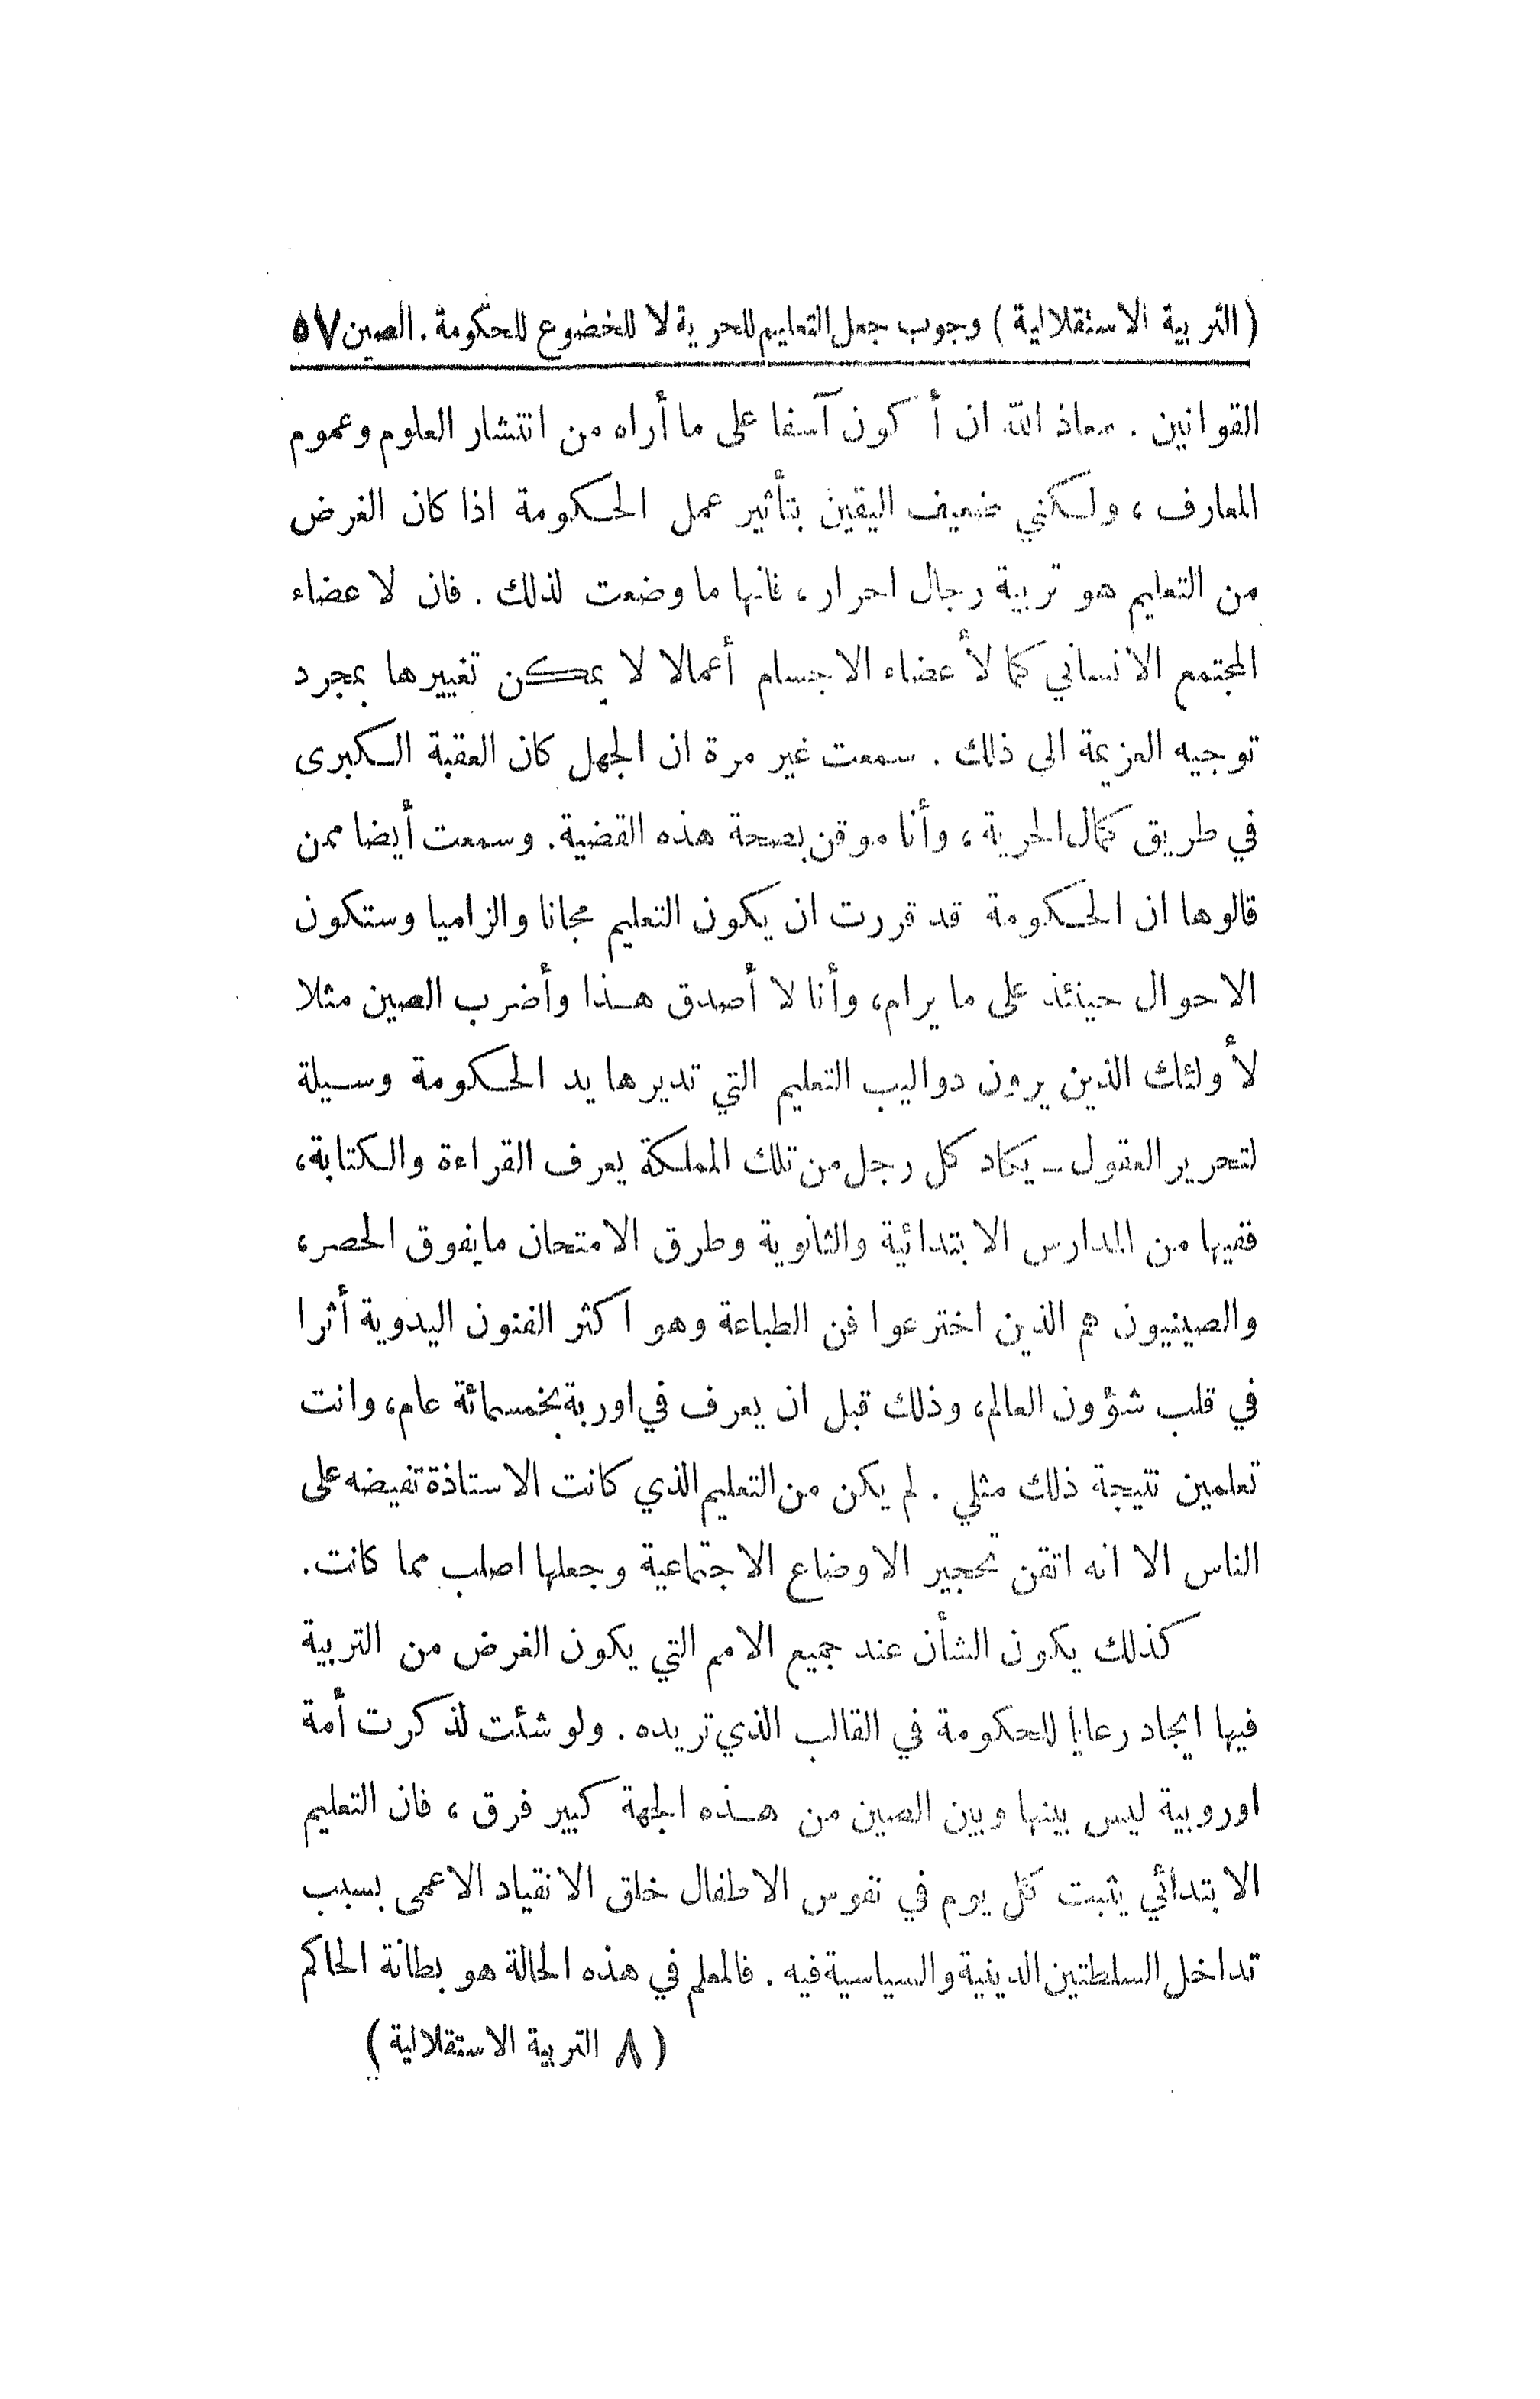 (التربية الاستقلالية) وجوب جعل التعليم للحرية لا للخضوع للحكومة. الصين ٥٧
القوانين . معاذ الله ان أكون آسفا على ما أراه من انتشار العلوم وعموم
المعارف ، ولكني ضعيف اليقين بتأثير عمل الحكومة اذا كان الغرض
من التعليم هو تربية رجال احرار ، فانها ما وضعت لذلك . فان لاعضاء
المجتمع الانساني كما لأعضاء الاجسام أعمالا لا يمكن تغييرها بمجرد
توجيه العزيمة الى ذلك . سمعت غير مرة ان الجهل كان العقبة الكبرى
في طريق كمال الحرية ، وأنا موقن بصحة هذه القضية. وسمعت أيضا ممن
قالوها ان الحكومة قد قررت ان يكون التعليم مجانا والزاميا وستكون
الاحوال حينئذ على ما يرام، وأنا لا أصدق هذا وأضرب الصين مثلا
لأولئك الذين يرون دواليب التعليم التي تديرها يد الحكومة وسيلة
لتحرير العقول ــ يكاد كل رجل من تلك المملكة يعرف القراءة والكتابة،
ففيها من المدارس الابتدائية والثانوية وطرق الامتحان مايفوق الحصر،
والصينيون هم الذين اخترعوا فن الطباعة وهو اكثر الفنون اليدوية أثرا
في قلب شؤون العالم، وذلك قبل ان يعرف في اوربة بخمسمائة عام، وانت
تعلمين نتيجة ذلك مثلي . لم يكن من التعليم الذي كانت الاستاذة تفيضه على
الناس الا انه اتقن تحجير الاوضاع الاجتماعية وجعلها اصلب مما كانت.
كذلك يكون الشأن عند جميع الامم التي يكون الغرض من التربية
فيها ايجاد رعايا للحكومة في القالب الذي تريده . ولو شئت لذكرت أمة
اوروبية ليس بينها وبين الصين من هذه الجهة كبير فرق ، فان التعليم
الابتدائي يثبت كل يوم في نفوس الاطفال خلق الانقياد الاعمى بسبب
تداخل السلطتين الدينية والسياسية فيه . فالمعلم في هذه الحالة هو بطانة الحاكم
(٨ التربية الاستقلالية)